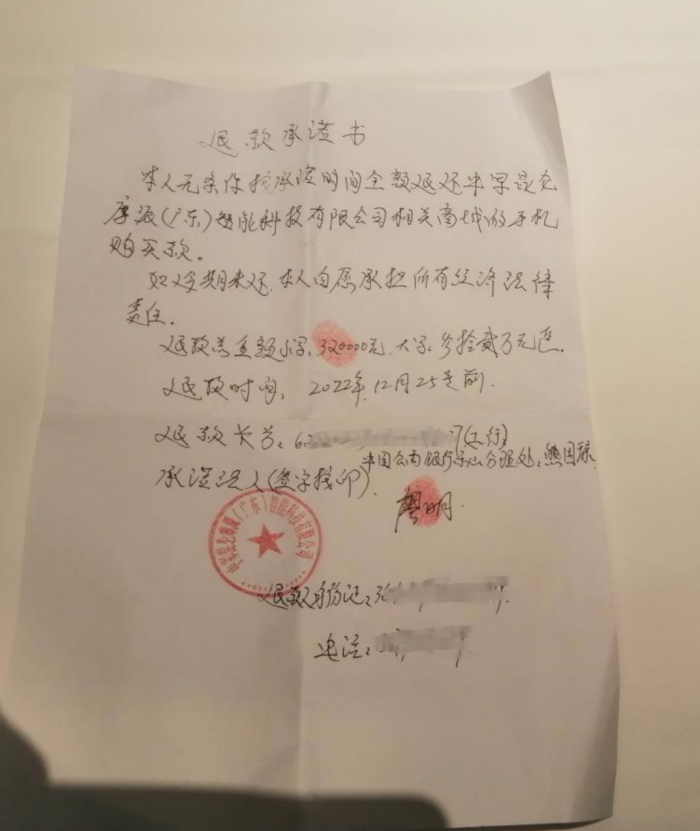 退款承诺书
本人无条件按承诺时间全额退还中孚昆仑
摩派(广东)智能科技有限公司相关商城的手机
购买款。
如到期未还,本人自愿承担所有经济法律
责任。
退款总金额小写:320000元,大写:叁拾贰万元正。
退款时间:2022年12月25号前.
退款卡号:62 7(工行)
中国工商银行 分理处:熊国
承诺人(签字按印)
廖明.
(广东)智能科技有限公司
退款身份证:36
电话: